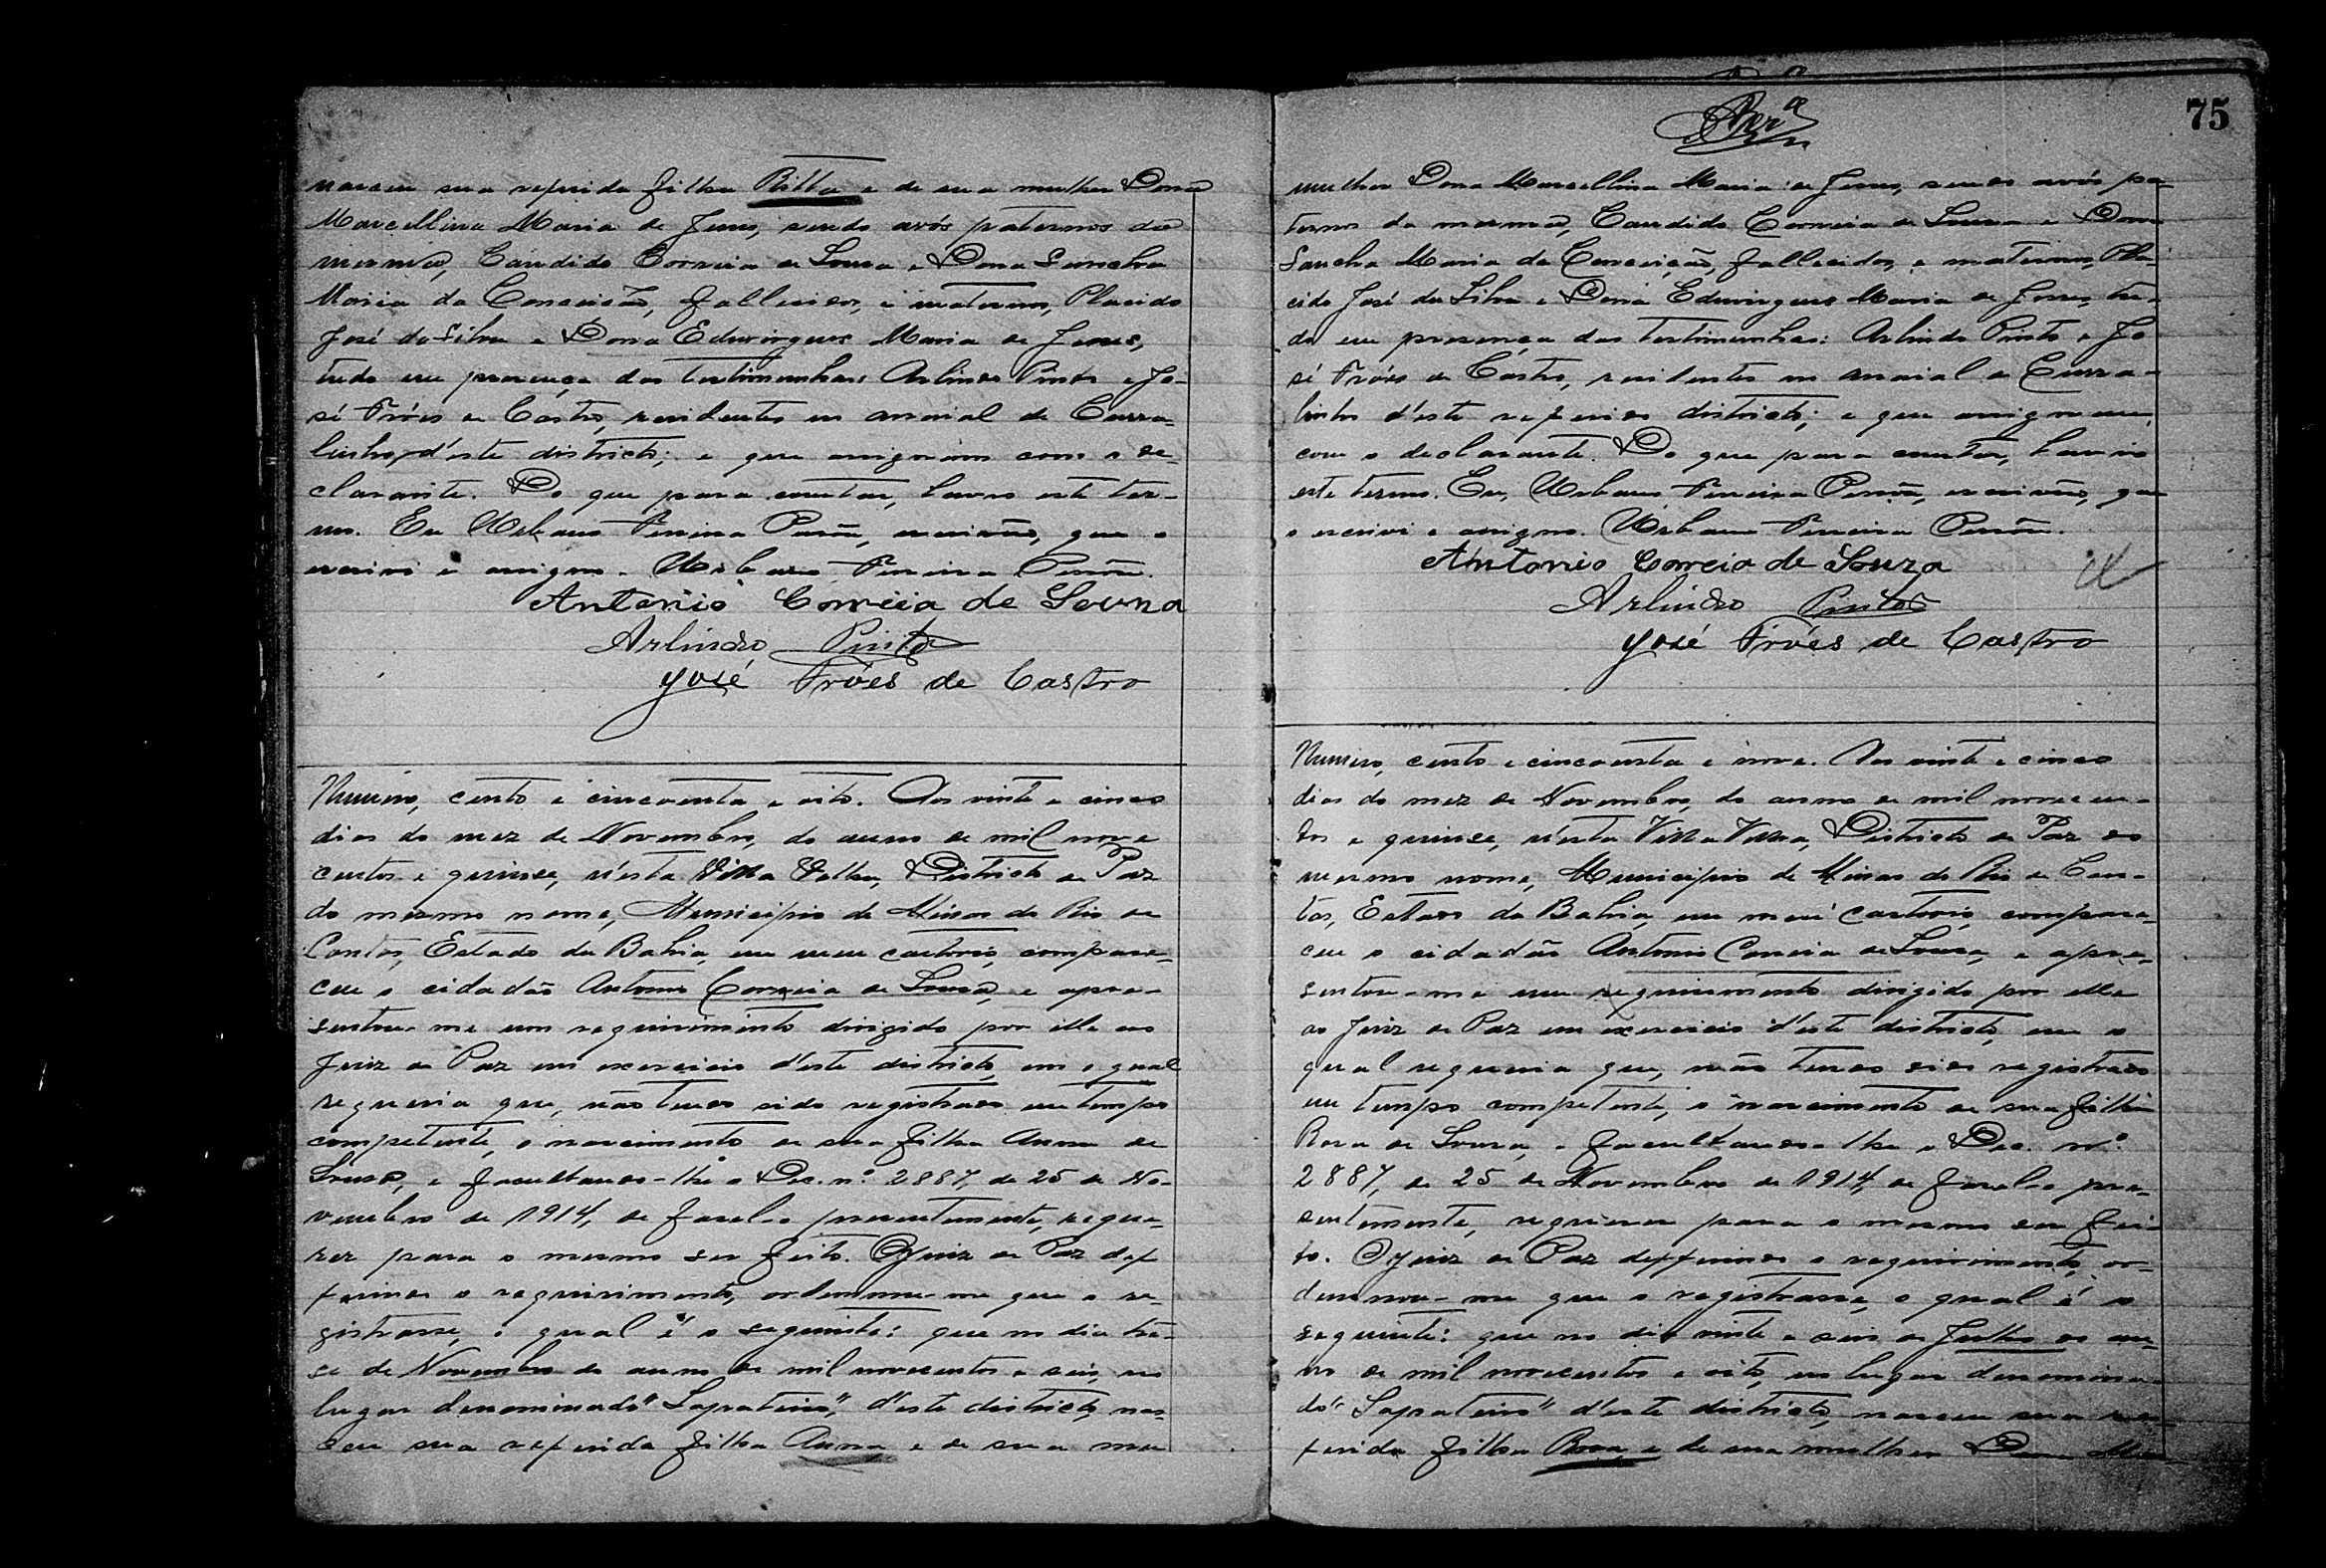 nasceu sua referida filha Ritta e de sua mulher Dona
Marcellina Maria de Jesus, sendo avós paternos da
mesma, Candido Correia de Souza e Dona Sancha
Maria da Conceição, fallecidos, e maternos, Placido
José da Silva e Dona Eduvirgens Maria de Jesus,
tudo em presença das testimunhas: Arlindo Pinto e Jo-
sé Fróes de Castro, residentes no arraial de Curra-
linho, d'este districto; e que assignam com o de-
clarante. Do que para constar, lavro este ter-
mo. Eu Urbano Ferreira
escrivi e assigno. Urbano Ferreira
Antonio Correia de Souza
Arlindo Pinto
José Fróes de Castro
Numero, cento e cincoenta e oito. Aos vinte e cinco
dias do mez de Novembro, do anno de mil nove
centos e quinse, n'esta Villa Velha, Districto de Paz
do mesmo nome, Municipio de Minas do Rio de
Contas, Estado da Bahia, em meu cartorio, compare-
ceu o cidadão Antonio Correia de Souza, e apre-
sentou-me um requirimento dirigido por elle ao
Juiz de Paz em exercicio d'este districto, em o qual
requeria que, não tendo sido registrado em tempo
competente, o nascimento de sua filha Anna de
Souza, e facultando-lhe o Dec. nº 2887, de 25 de No-
vembro de 1914, de fasel-o presentemente, reque-
rer para o mesmo ser feito. O Juiz de Paz def
ferindo o requirimento, ordennou-me que o re-
gistrasse, o qual é o seguinte: que no dia tre-
se de Novembro do anno de mil novecentos e seis, no
lugar denominado "Sapateiro", d'este districto, nas-
ceu sua referida filha Anna e de sua mu
75
mulher Dona Marcellina Maria de Jesus, sendo avós pa-
ternos da mesma, Candido Correia de Souza e Dona
Sancha Maria da Conceição, fallecidos, e maternos, Pla-
cido José da Silva e Dona Eduvirgens Maria de Jesus, tu-
do em presença das testimunhas: Arlindo Pinto e Jo
sé Fróes de Castro, residentes no arraial de Curra-
linho d'este referido districto; e que assignam
com o declarante. Do que para constar, lavro
este termo. Eu, Urbano Ferreira escrivão, que
o escrivi e assigno. Urbano Ferreira
Antonio Correia de Souza
Arlindo Pinto
José Fróes de Castro
Numero, cento e cincoenta e nove. Aos vinte e cinco
dias do mez de Novembro, do anno de mil novecen-
tos e quinse, n'esta Villa Velha, Districto de Paz do
mesmo nome, Municipio de Minas do Rio de Con-
tas, Estado da Bahia, em meu cartorio, compare-
ceu o cidadão Antonio Correia de Souza, e apre-
sentou-me um requirimento dirigido por elle
ao Juiz de Paz em exercicio d'este districto, em o
qual requeria que, não tendo sido registrado
em tempo competente, o nascimento de sua filha
Rosa de Souza, e facultando-lhe o Dec. nº
2887, de 25 de Novembro de 1914, de fasel-o pre-
sentemente, requerer para o mesmo ser fei-
to. O Juiz de Paz defferindo o requirimento, or-
dennou-me que o registrasse, o qual é o
seguinte: que no dia vinte e seis de Julho do an-
no de mil novecentos e oito, no lugar denomina-
do "Sapateiro" d'este districto, nasceu sua re-
ferida filha Rosa e de sua mulher Dona Mar